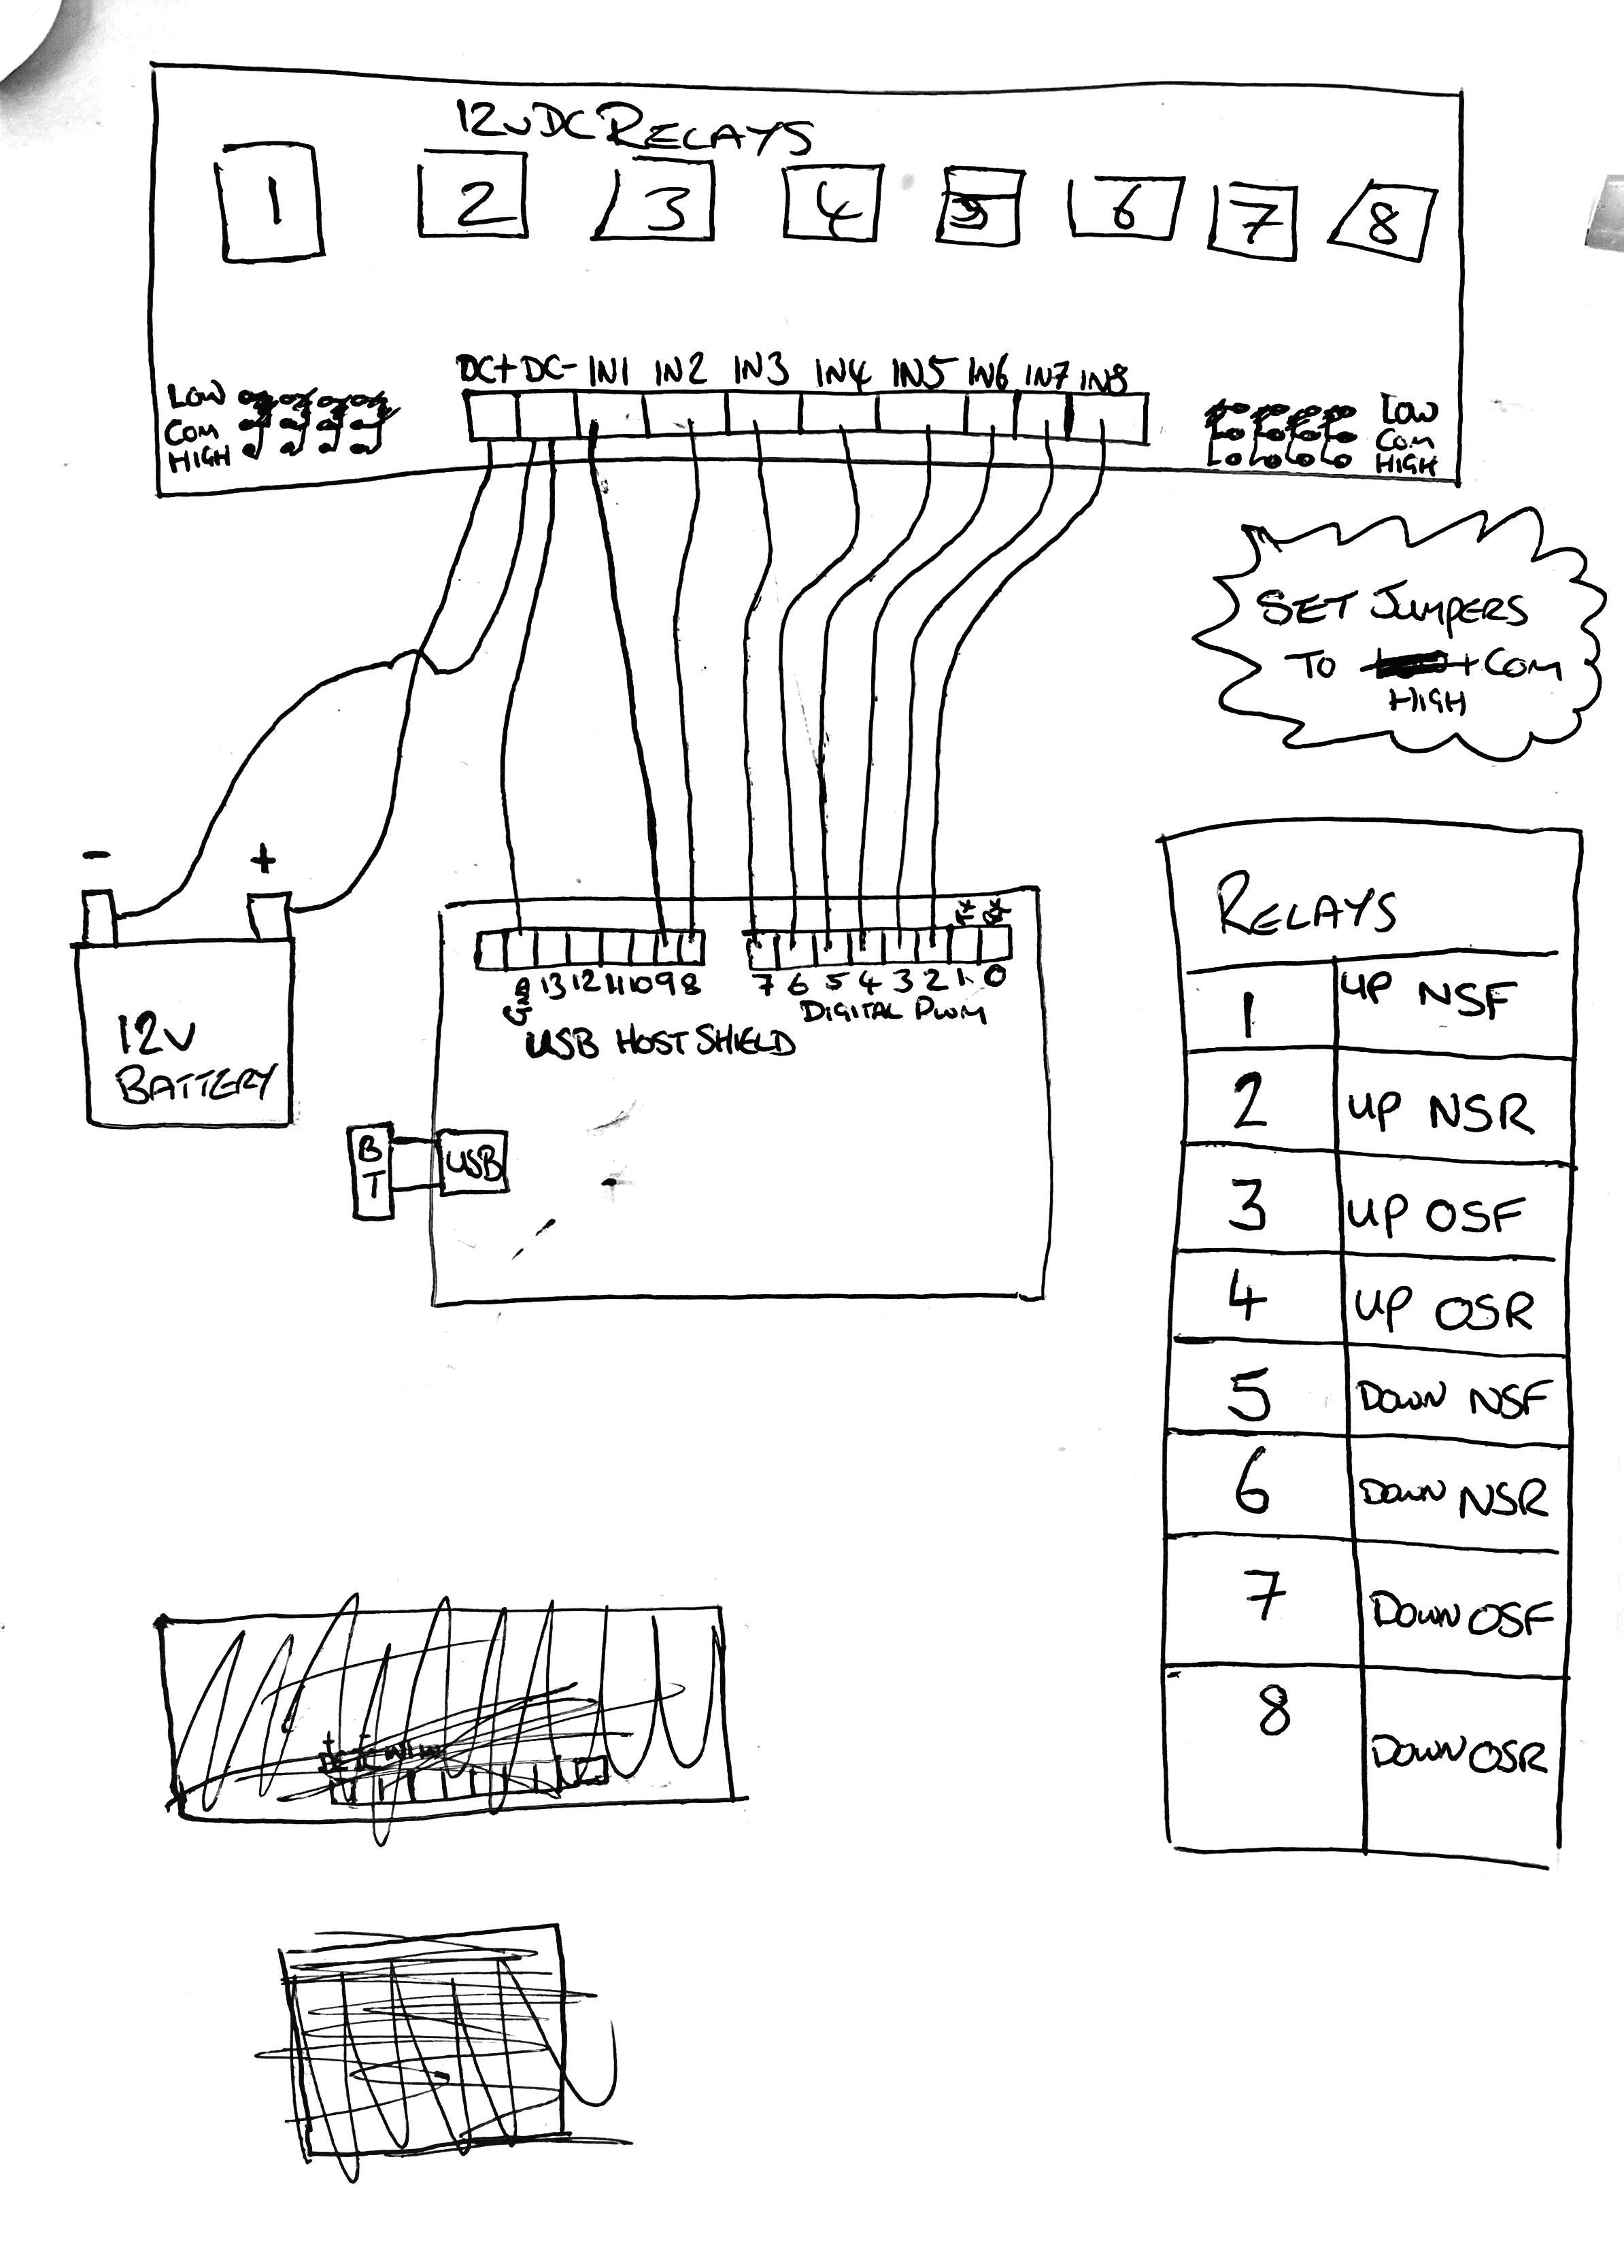 12V DC RELAYS
1 2 3 4 5 6 7 8
DC+ DC- IN1 IN2 IN3 IN4 IN5 IN6 IN7 IN8
LOW
COM
HIGH
LOW
COM
HIGH
SET JUMPERS
TO + COM
HIGH
- +
12V
BATTERY
TX RX
GND 13 12 11 10 9 8 7 6 5 4 3 2 1 0
DIGITAL PWM
USB HOST SHIELD
BT
USB
RELAYS
1 UP NSF
2 UP NSR
3 UP OSF
4 UP OSR
5 DOWN NSF
6 DOWN NSR
7 DOWN OSF
8 DOWN OSR